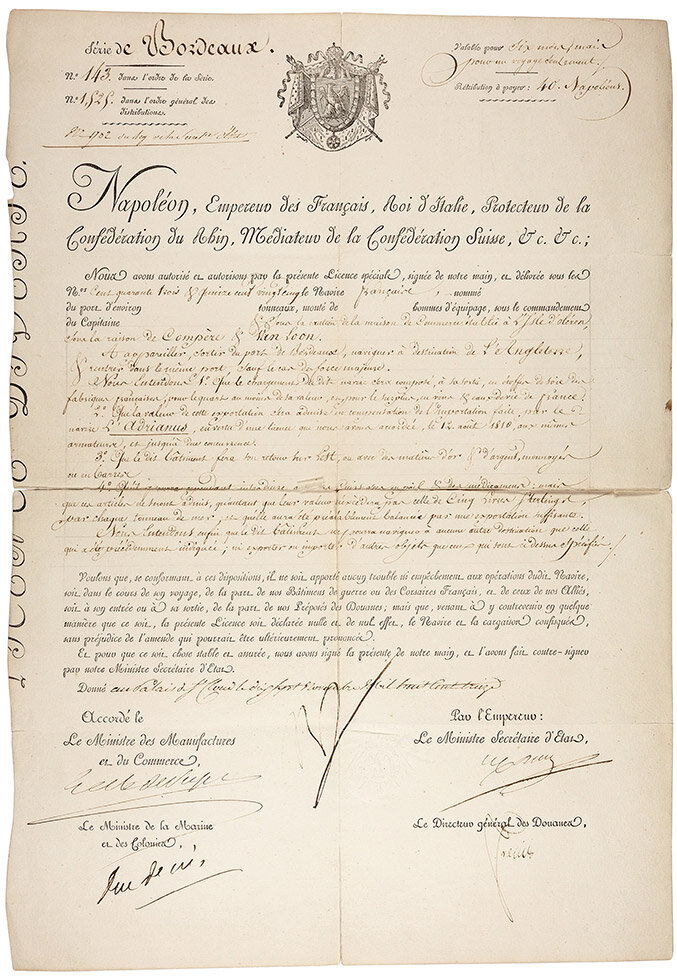 Série de Bordeaux.
N.º 143. dans l'ordre de la Série.
N.º 1,525. dans l'ordre général des
distributions.
Valable pour Six mois, mais
pour un voyage seulement.
Rétribution à payer: 40. Napoléons.
Napoléon, Empereur des Français, Roi d'Italie, Protecteur de la
Confédération du Rhin, Médiateur de la Confédération Suisse, &c. &c.;
Nous avons autorisé et autorisons par la présente Licence spéciale, signée de notre main, et délivrée sous les
N.os Cent quarante trois & quinze cent vingt cinq le Navire française, nommé
du port d'environ tonneaux, monté de hommes d'équipage, sous le commandement
du Capitaine & sous la raison de la maison de Commerce établie à L'Isle d'oléron
sous la raison de Compère & Van Loon.
A appareiller, sortir du port de Bordeaux, naviguer à destination de L'Angleterre,
& rentrer dans le même port, sauf le cas de force majeure.
Nous Entendons 1.º Que le chargement du dit navire sera composé, à sa sortie, en étoffes de soie des
fabriques françaises, pour le quart au moins de sa valeur, et, pour le surplus, en vins & eaux de vie de france.
2.º Que la valeur de cette exportation sera admise en compensation de l'importation faite, par le
navire L'Adrianus, en vertu d'une licence que nous avons accordée, le 12. août 1810, aux mêmes
armateurs, et jusqu'à due concurrence.
3.º Que le dit bâtiment fera son retour sur Lest, ou avec des matières d'or & d'argent, monnoyées
ou en barres.
4.º & des médicamens; mais
que ces articles ne seront admis, qu'autant que leur valeur n'excédera pas celle de Cinq Livres Sterlings,
par chaque tonneau de mer, et qu'elle aura été préalablement balancée par une exportation suffisante.
Nous Entendons enfin que le dit bâtiment ne pourra naviguer à aucune autre destination que celle
qui est précédemment indiquée, ni exporter ou importer d'autres objets que ceux qui sont ci dessus spécifiés.
Voulons que, se conformant à ces dispositions, il ne soit apporté aucun trouble ni empêchement aux opérations dudit Navire,
soit dans le cours de son voyage, de la part de nos Bâtimens de guerre ou des Corsaires Français, et de ceux de nos Alliés,
soit à son entrée ou à sa sortie, de la part de nos Préposés des Douanes; mais que, venant à y contrevenir en quelque
manière que ce soit, la présente Licence soit déclarée nulle et de nul effet, le Navire et la cargaison confisqués,
sans préjudice de l'amende qui pourrait être ultérieurement prononcée.
Et pour que ce soit chose stable et assurée, nous avons signé la présente de notre main, et l'avons fait contre-signer
par notre Ministre Secrétaire d'État.
Donné au Palais de St. Cloud le dix sept Mil huit Cent treize
Accordé le
Le Ministre des Manufactures
et du Commerce,
Le Ministre de la Marine
et des Colonies,
Par l'Empereur:
Le Ministre Secrétaire d'État,
Le Directeur général des Douanes,